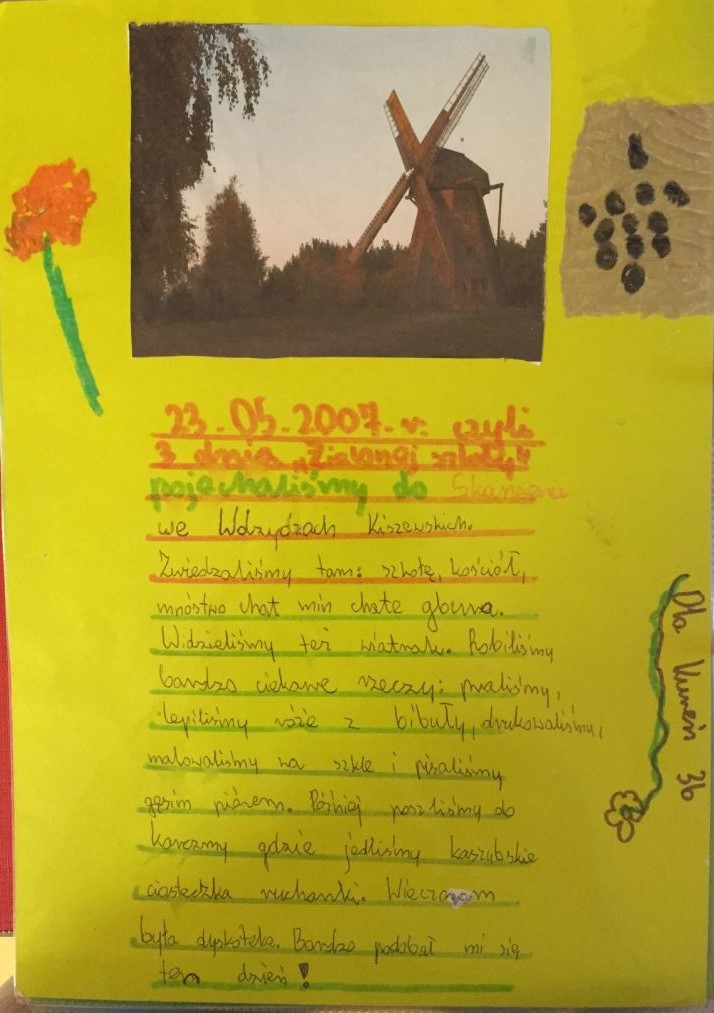 23.05.2007.r. czyli
3 dnia "Zielonej szkoły"
pojechaliśmy do Skansenu
we Wdzydzach Kiszewskich.
Zwiedzaliśmy tam: szkołę, kościół,
mnóstwo chat min chatę
Widzieliśmy też wiatrak. Robiliśmy
bardzo ciekawe rzeczy: praliśmy,
lepiliśmy róże z bibuły, drukowaliśmy,
malowaliśmy na szkle i pisaliśmy
gęsim piórem. Później poszliśmy do
karczmy gdzie jedliśmy kaszubskie
ciasteczka ruchanki. Wieczorem
była dyskoteka. Bardzo podobał mi się
ten dzień!
Ola 3b